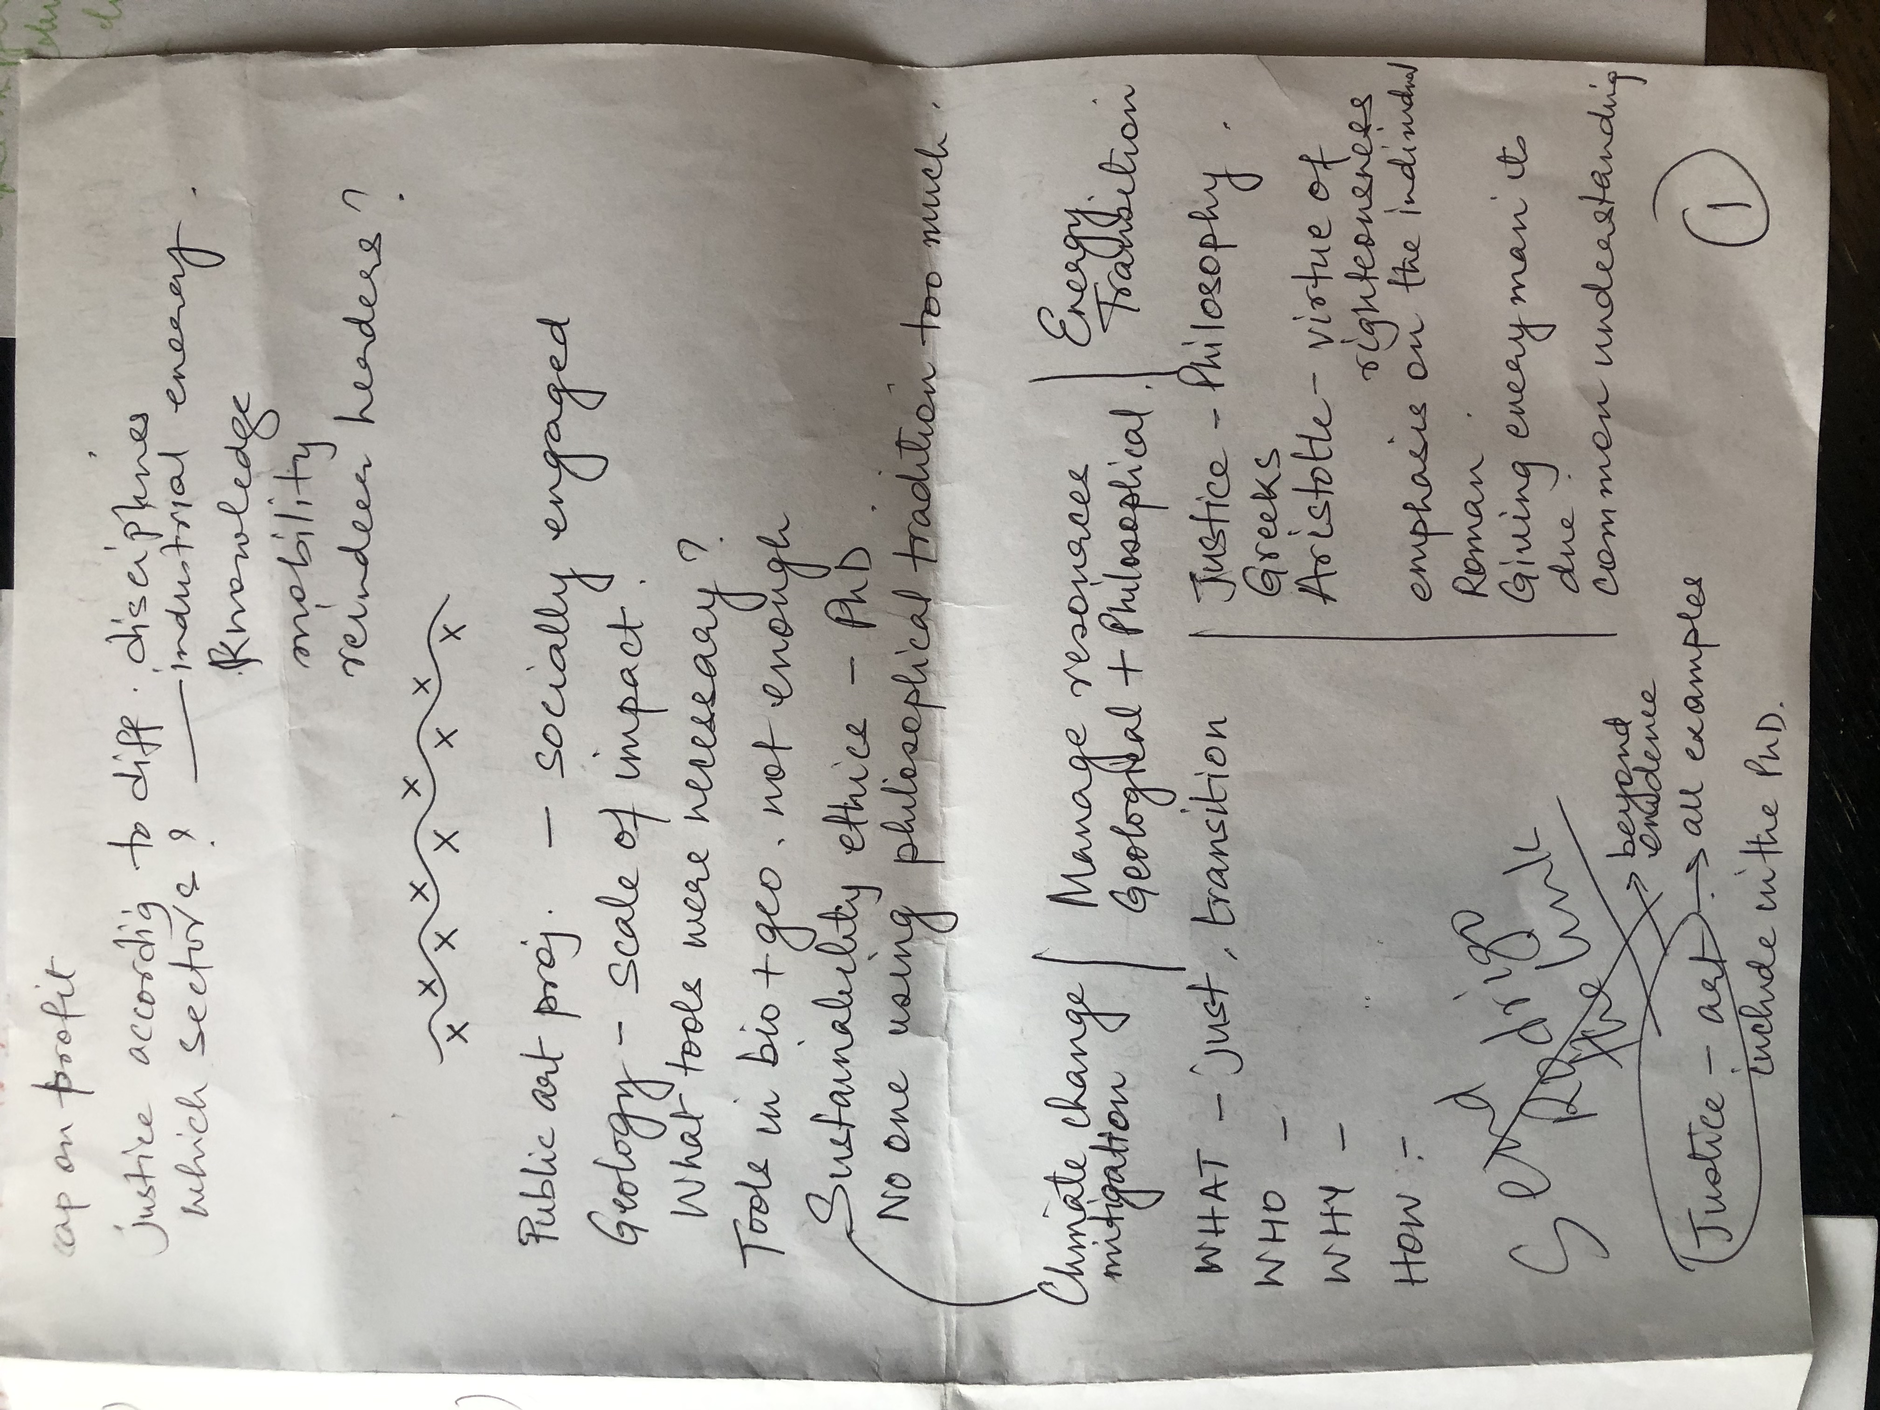 cap on profit
justice accordig to diff. disciplines
which sectors? — industrial energy.
knowledge
mobility
reindeer herders?
Public art proj. — socially engaged
Geology — scale of impact.
What tools were necessary?
Tools in bio + geo. not enough
Sustainability ethics — PhD.
No one using philosophical tradition too much.
Climate change mitigation | Manage resources | Energy Transition
Geological + Philosophical.
WHAT — just, transition
WHO —
WHY —
HOW :-
Justice — Philosophy.
Greeks
Aristotle — virtue of
righteousness
emphasis on the individual
Roman.
Giving every man its
due.
common understanding
Send drigo
the link
beyond
endidence
Justice — art → all examples
include in the PhD.
1